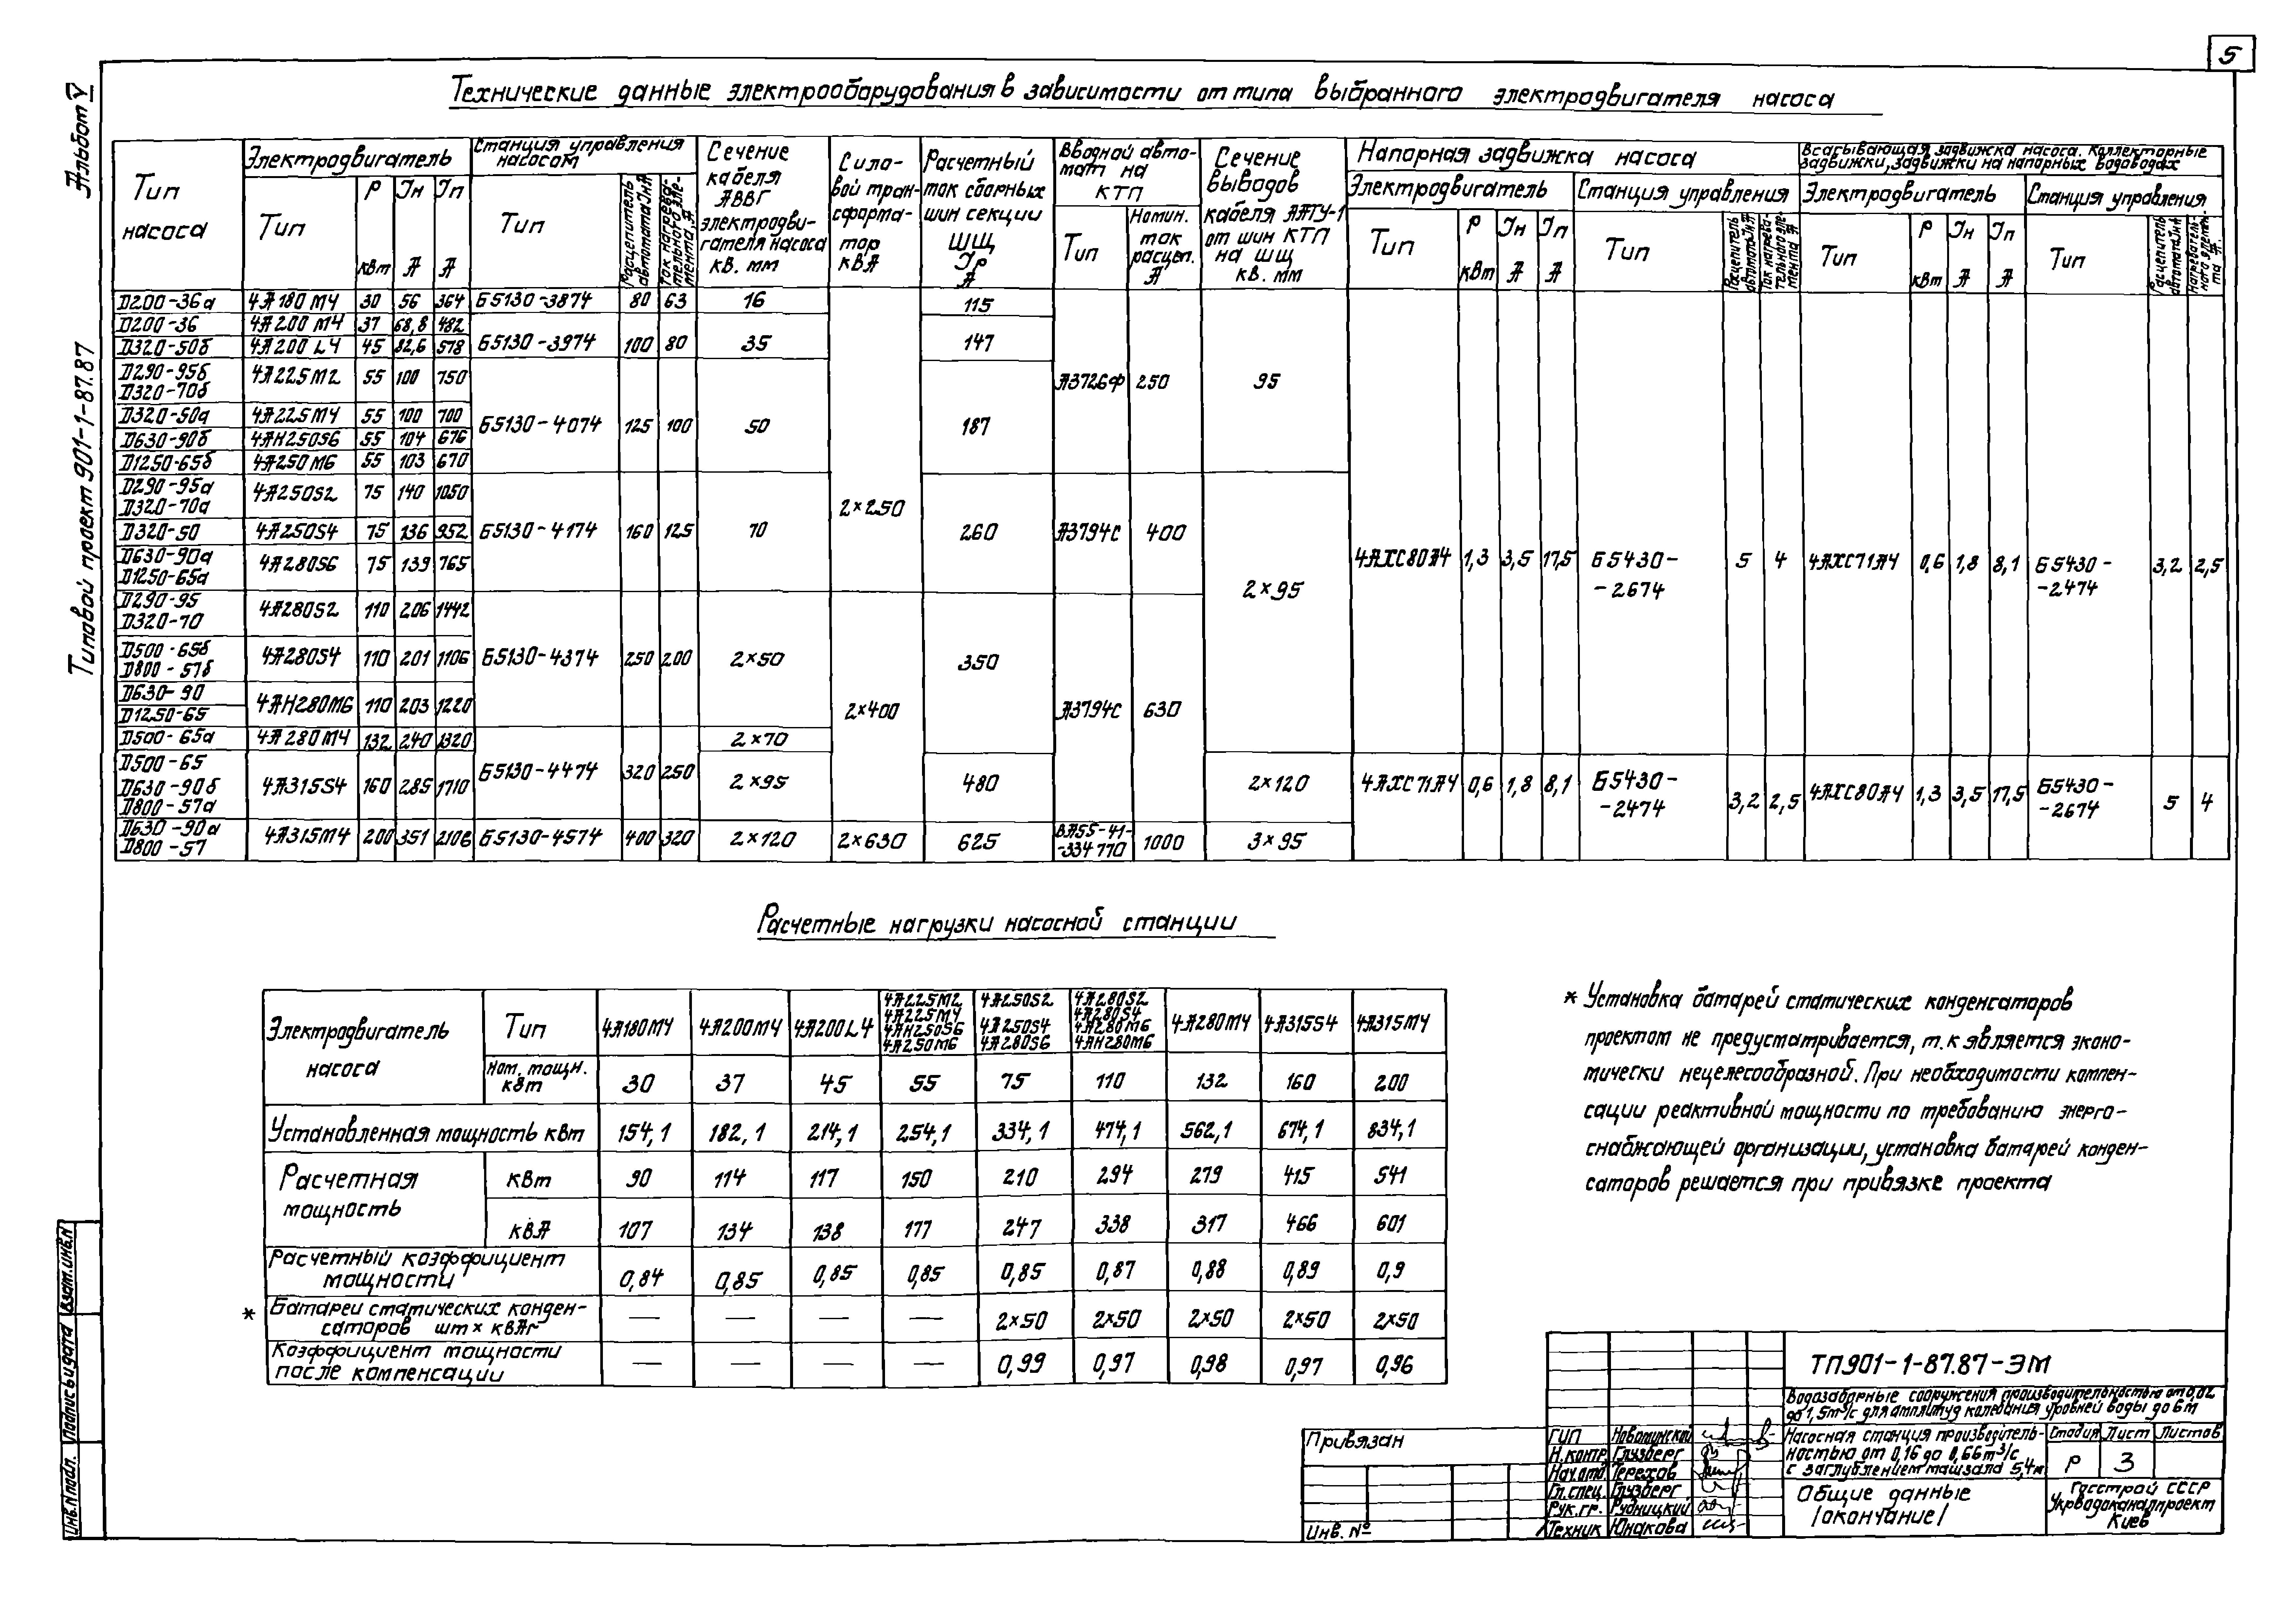 5
Альбом V
Типовой проект 901-1-87.87
Технические данные электрооборудования в зависимости от типа выбранного электродвигателя насоса
Тип насоса
Электродвигатель
Тип
Р кВт
Iн А
Iп А
Станция управления насосом
Тип
Расцепитель автомата Iн А
Ток нагревательного элемента, А
Сечение кабеля АВВГ электродвигателя насоса кв. мм
Силовой трансформатор кВА
Расчетный ток сборных шин секции ШЩ Iр А
Вводной автомат на КТП
Тип
Номин. ток расцеп. А
Сечение выводов кабеля ААГУ-1 от шин КТП на ШЩ кв. мм
Напорная задвижка насоса
Электродвигатель
Тип
Р кВт
Iн А
Iп А
Станция управления
Тип
Расцепитель автомата Iн А
Ток нагревательного элемента А
Всасывающая задвижка насоса. Коллекторные задвижки, задвижки на напорных водоводах
Электродвигатель
Тип
Р кВт
Iн А
Iп А
Станция управления
Тип
Расцепитель автомата Iн А
Нагревательного элемента А
Д200-36а 4А180М4 30 56 364 Б5130-3874 80 63 16 115
Д200-36 4А200М4 37 68,8 482
Д320-50б 4А200L4 45 82,6 578 Б5130-3974 100 80 35 147
Д290-95б
Д320-70б 4А225М2 55 100 750 А3726Ф 250 95
Д320-50а 4А225М4 55 100 700 Б5130-4074 125 100 50 187
Д630-90б 4АН250S6 55 104 676
Д1250-65б 4А250М6 55 103 670
Д290-95а
Д320-70а 4А250S2 75 140 1050 2×250
Д320-50 4А250S4 75 136 952 Б5130-4174 160 125 70 260 А3794С 400
Д630-90а
Д1250-65а 4А280S6 75 139 765 2×95 4АХС80А4 1,3 3,5 17,5 Б5430-
-2674 5 4 4АХС71А4 0,6 1,8 8,1 Б5430-
-2474 3,2 2,5
Д290-95
Д320-70 4А280S2 110 206 1442
Д500-65б
Д800-57б 4А280S4 110 201 1106 Б5130-4374 250 200 2×50 350
Д630-90
Д1250-65 4АН280М6 110 203 1220 2×400 А3794С 630
Д500-65а 4А280М4 132 240 1320 2×70
Д500-65
Д630-90б
Д800-57а 4А315S4 160 285 1710 Б5130-4474 320 250 2×95 480 2×120 4АХС71А4 0,6 1,8 8,1 Б5430-
-2474 3,2 2,5 4АХС80А4 1,3 3,5 17,5 Б5430-
-2674 5 4
Д630-90а
Д800-57 4А315М4 200 351 2106 Б5130-4574 400 320 2×120 2×630 625 ВА55-41-
-334770 1000 3×95
Расчетные нагрузки насосной станции
Электродвигатель насоса
Тип 4А180М4 4А200М4 4А200L4 4А225М2 4А225М4 4АН250S6 4А250М6 4А250S2 4А250S4 4А280S6 4А280S2 4А280S4 4А280М6 4АН280М6 4А280М4 4А315S4 4А315М4
Ном. мощн. кВт 30 37 45 55 75 110 132 160 200
Установленная мощность кВт 154,1 182,1 214,1 254,1 334,1 474,1 562,1 674,1 834,1
Расчетная мощность
кВт 90 114 117 150 210 294 279 415 541
кВА 107 134 138 177 247 338 317 466 601
Расчетный коэффициент мощности 0,84 0,85 0,85 0,85 0,85 0,87 0,88 0,89 0,9
* Батареи статических конденсаторов шт × кВАг — — — — 2×50 2×50 2×50 2×50 2×50
Коэффициент мощности после компенсации — — — — 0,99 0,97 0,98 0,97 0,96
* Установка батарей статических конденсаторов
проектом не предусматривается, т.к является эконо-
мически нецелесообразной. При необходимости компен-
сации реактивной мощности по требованию энерго-
снабжающей организации, установка батарей конден-
саторов решается при привязке проекта
Привязан
Инв. №
ТП901-1-87.87-ЭМ
Водозаборные сооружения производительностью от 0,02
до 1,5м³/с для амплитуд колебания уровней воды до 6м
ГИП Новоминской
Н.контр. Глузберг
Нач.отд. Терехов
Гл.спец. Глузберг
Рук.гр. Рудницкий
Техник Юнакова
Насосная станция производитель-
ностью от 0,16 до 0,66м³/с
с заглублением машзала 5,4м
Стадия Лист Листов
Р 3
Общие данные
/окончание/
Госстрой СССР
Укрводоканалпроект
Киев
Взам.инв.N
Подпись и дата
Инв.N подл.